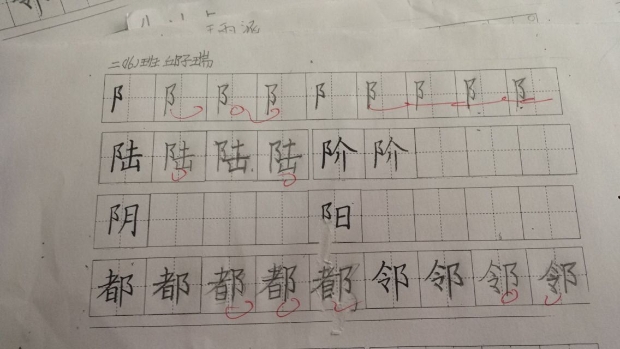 二(6)班 邱子瑞
阝阝阝阝阝阝阝阝阝
陆陆陆陆阶阶
阴阳
都都都都都邻邻邻邻